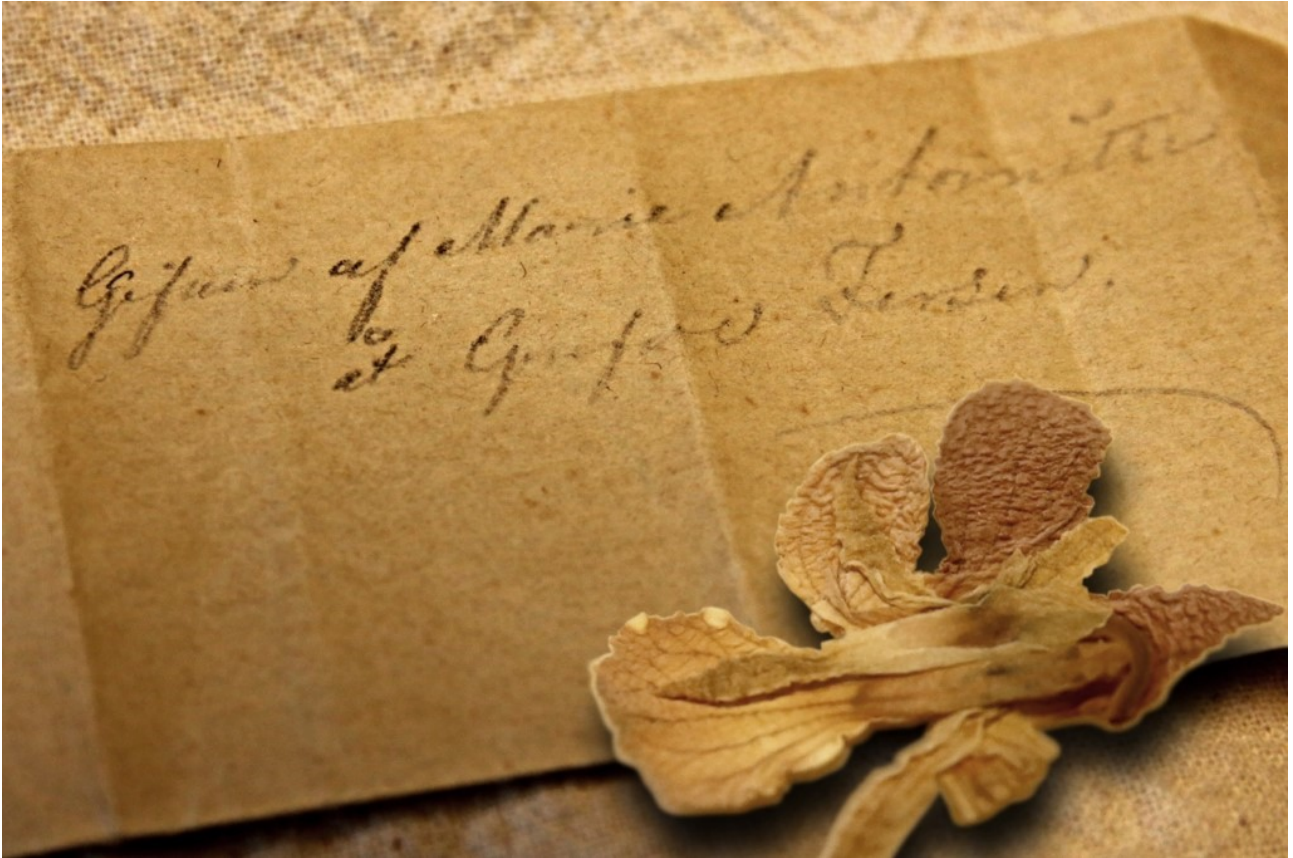 Gifven af Marie Antoinette
at Grefve Fersen.